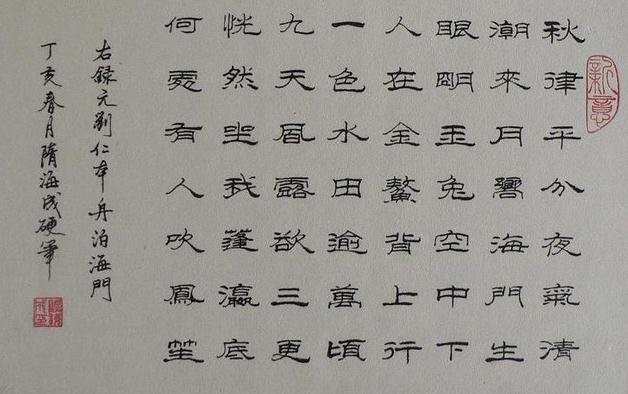 新意
秋律平分夜氣清
潮來月響海門生
眼明玉兔空中下
人在金鰲背上行
一色水田逾萬頃
九天風露欲三更
恍然坐我蓬瀛底
何處有人吹鳳笙
右錄元劉仁本舟泊海門
丁亥春月隋海成硬筆